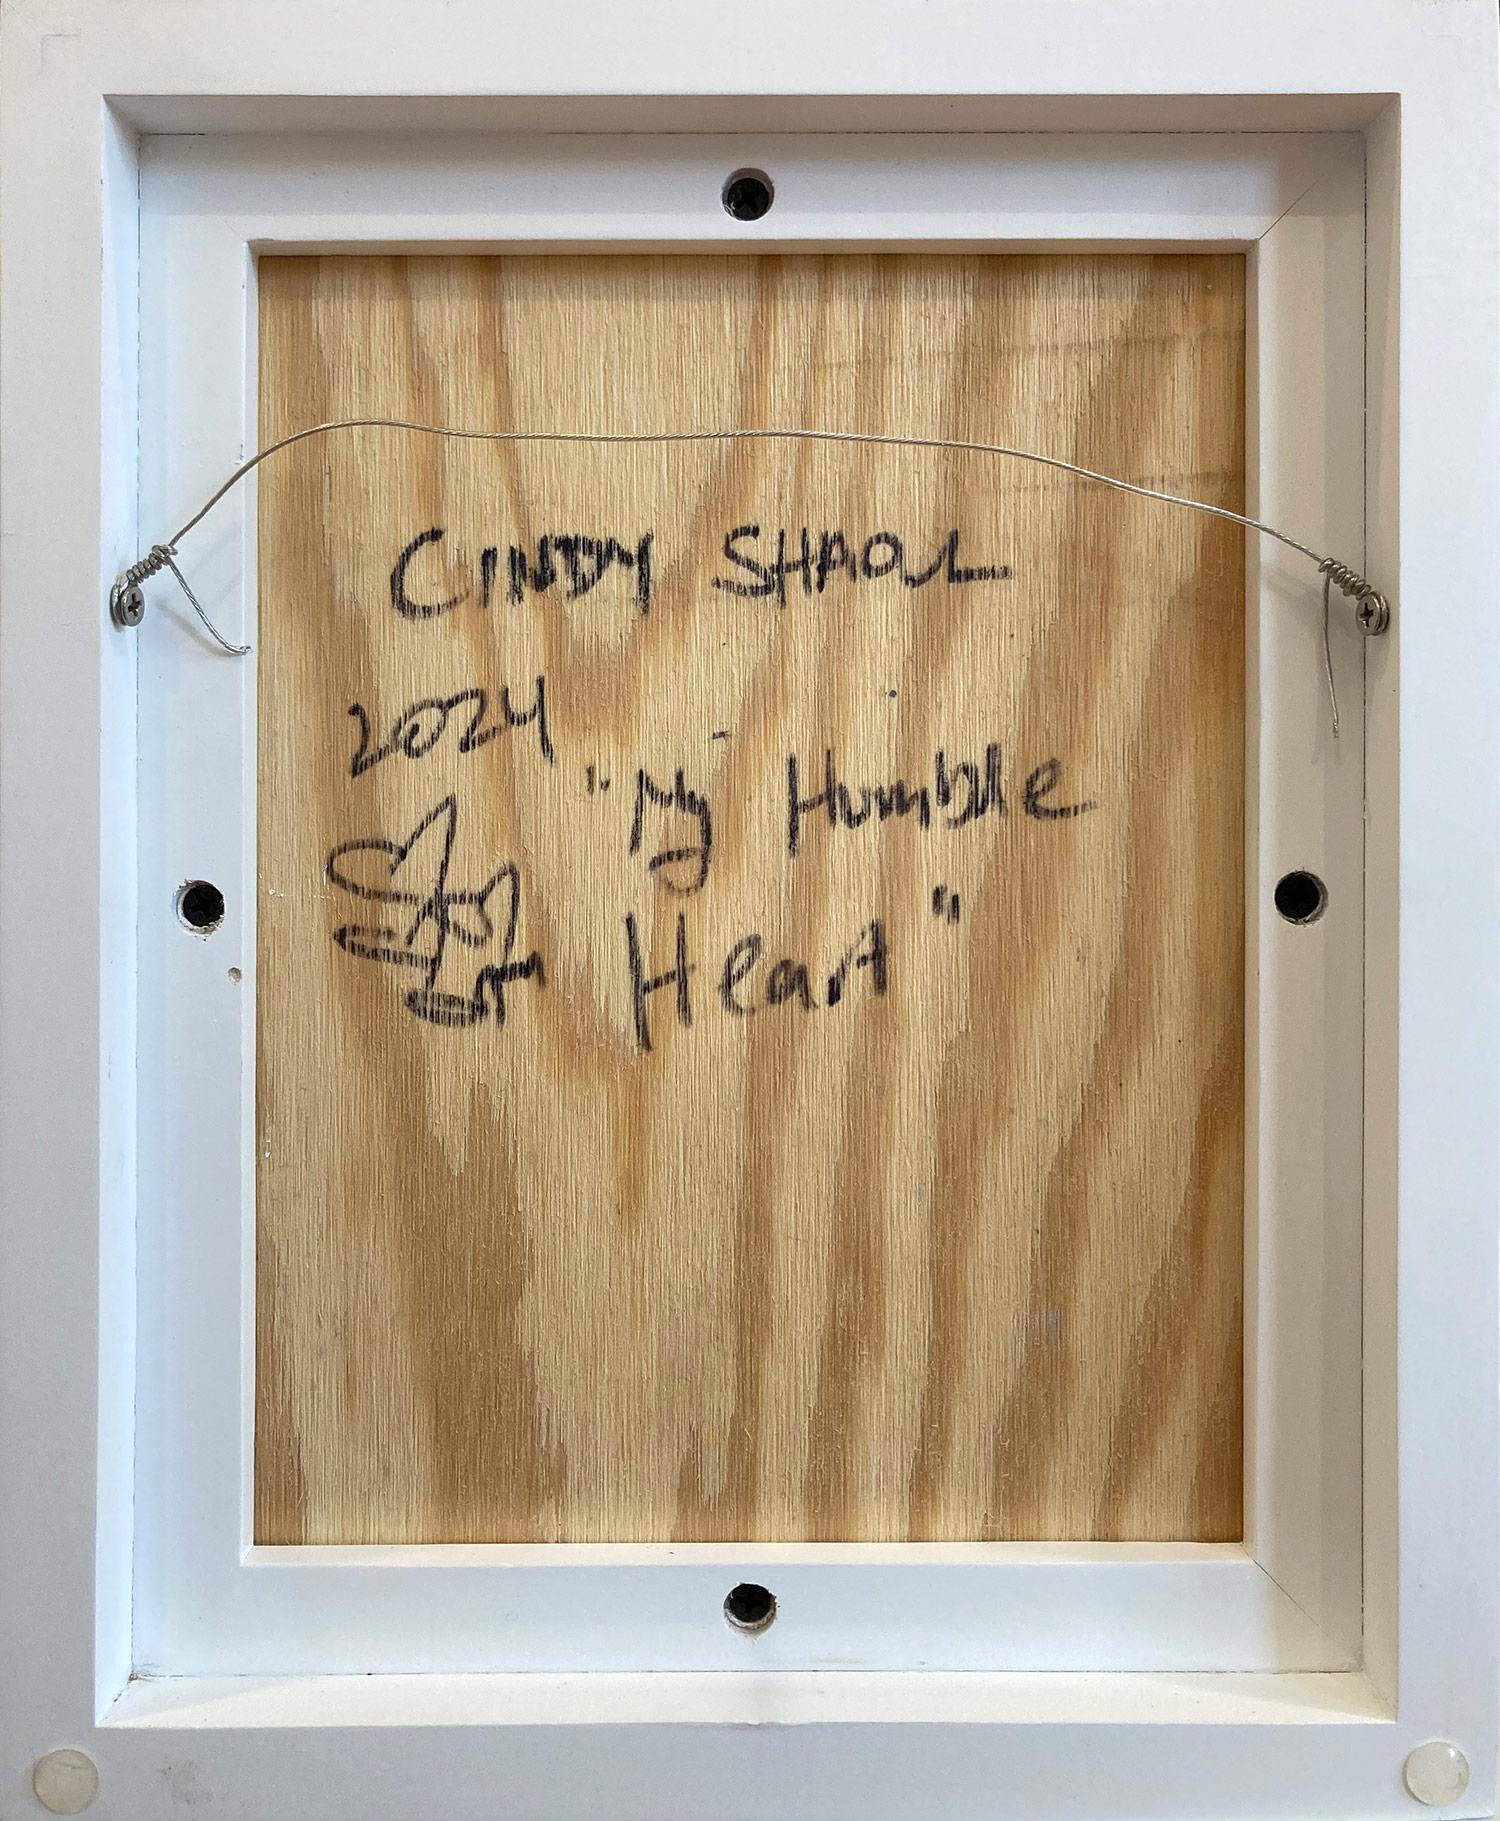 CINDY SHAOUL
2024
"My Humble
Heart"